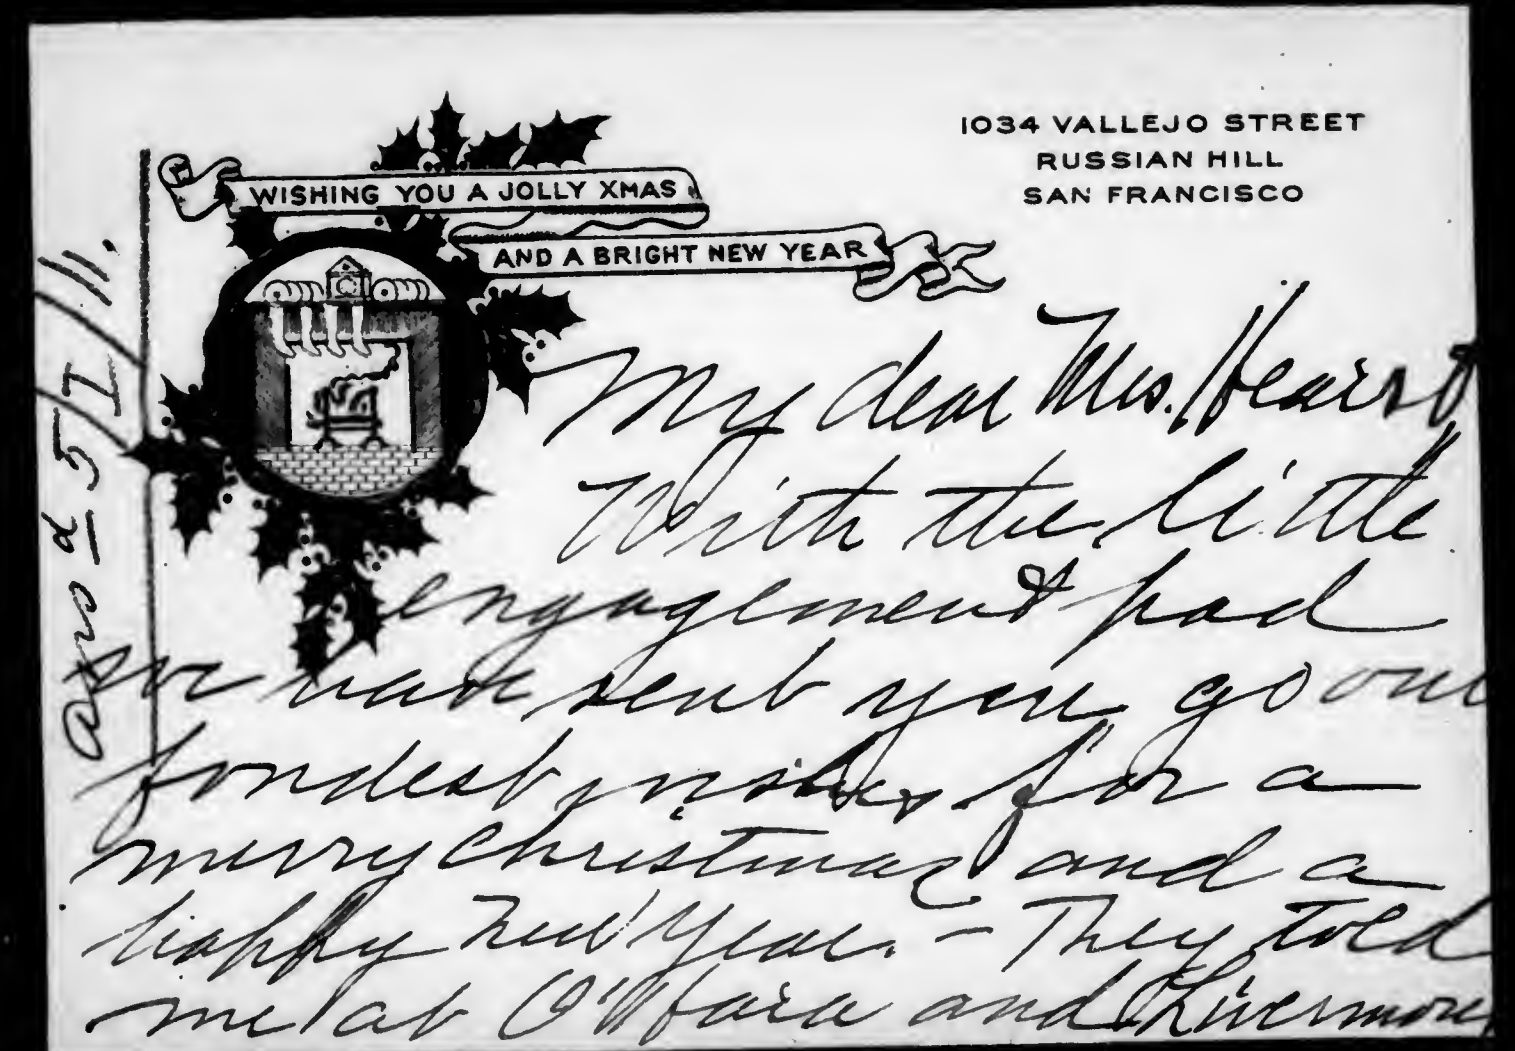 1034 VALLEJO STREET
RUSSIAN HILL
SAN FRANCISCO
WISHING YOU A JOLLY XMAS
AND A BRIGHT NEW YEAR
ansd 5 I / 11.
My dear Mrs. Hearst
With the little
engagement pad
we have sent you go our
fondest wishes for a
merry Christmas and a
happy New Year. - They told
me at O'Hara and Livermore